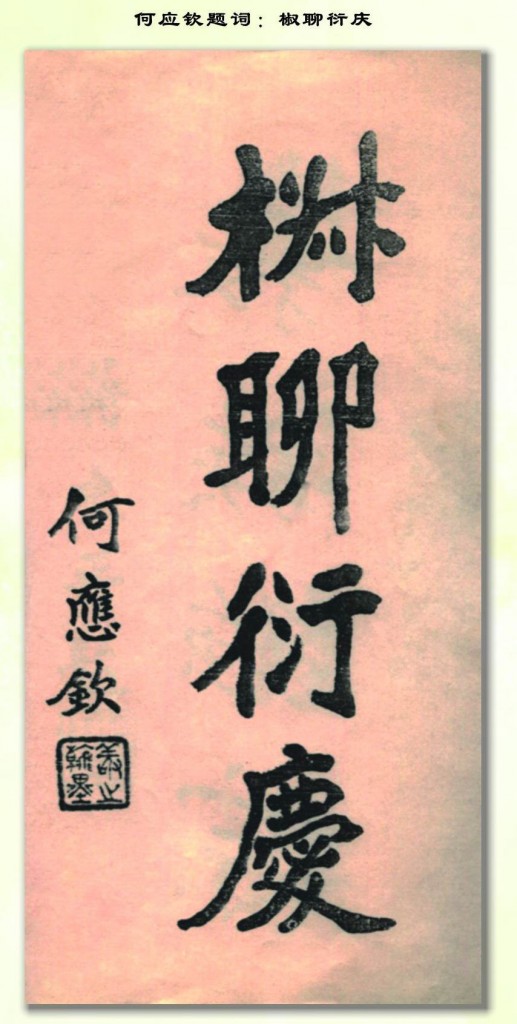 何应钦题词：椒聊衍庆
椒聊衍慶
何應欽
敬之
翰墨